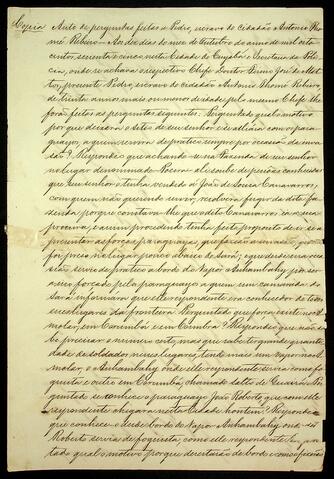 Copia Auto de perguntas feitas a Pedro, escravo do cidadão Antonio Tho-
mé Ribeiro = Aos dez dias do mez de Outubro do anno de mil oito
centos, sessenta e cinco, nesta Cidade de Cuyabá e Secretaria da Poli-
cia, onde se achava o respectivo Chefe Doutor Firmo José de Mat-
tos, presente Pedro, escravo do cidadão Antonio Thomé Ribeiro,
de trinta annos mais ou menos de idade pelo mesmo Chefe lhe
forão feitas as perguntas seguintes: Perguntado qual o motivo
por que deixara o sitio de seu senhor e se alliara com os para-
guayos, a quem servira de pratico sempre por occasião da inva-
são? Respondeo que achando-se na Fazenda de seu senhor
no lugar denominado ahi soube de pessôas conhecidas
que seu senhor o tinha vendido a João de Souza Canavarros,
com quem não querendo servir, resolvêra fugir da dita fa-
zenda porque constava-lhe que o dito Canavarros ia a sua
procura, e assim procedendo tinha feito proposito de se a-
presentar as forças paraguayas, que
foi preso no lugar pouco abaixo de Sará; e que desde essa occa-
sião servio de pratico a bordo do Vapôr Anhambahy, por ser
a isso forçado pelos paraguayos a quem um camarada do
Sará informara que elle respondente era conhecedor de todos
esses lugares da fronteira. Perguntado que força existe no A-
molar, em Corumbá e em Coimbra? Respondeo que não sa-
be precisar o numero certo, mas que sabe ter grande quanti-
dade de soldados nesses lugares, tendo mais um vapor no A-
molar, o Anhambahy, onde elle respondente servia como fo-
guista e outro em Corumbá, chamado Salto de Guairá. Per-
guntado se conhece o paraguayo José Roberto, que com elle
respondente chegára nesta Cidade hontem? Respondeo
que conhece-o desde bordo do Vapôr Anhambahy onde José
Roberto servia de foguista, como elle respondente. Pergun-
tado qual o motivo porque desertarão de bordo e como o fizerão